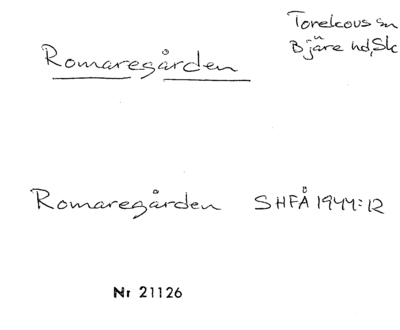 Torekovs sn
Romaregården
Bjäre hd, Sk
Romaregården SHFÅ 1944:12
Nr 21126